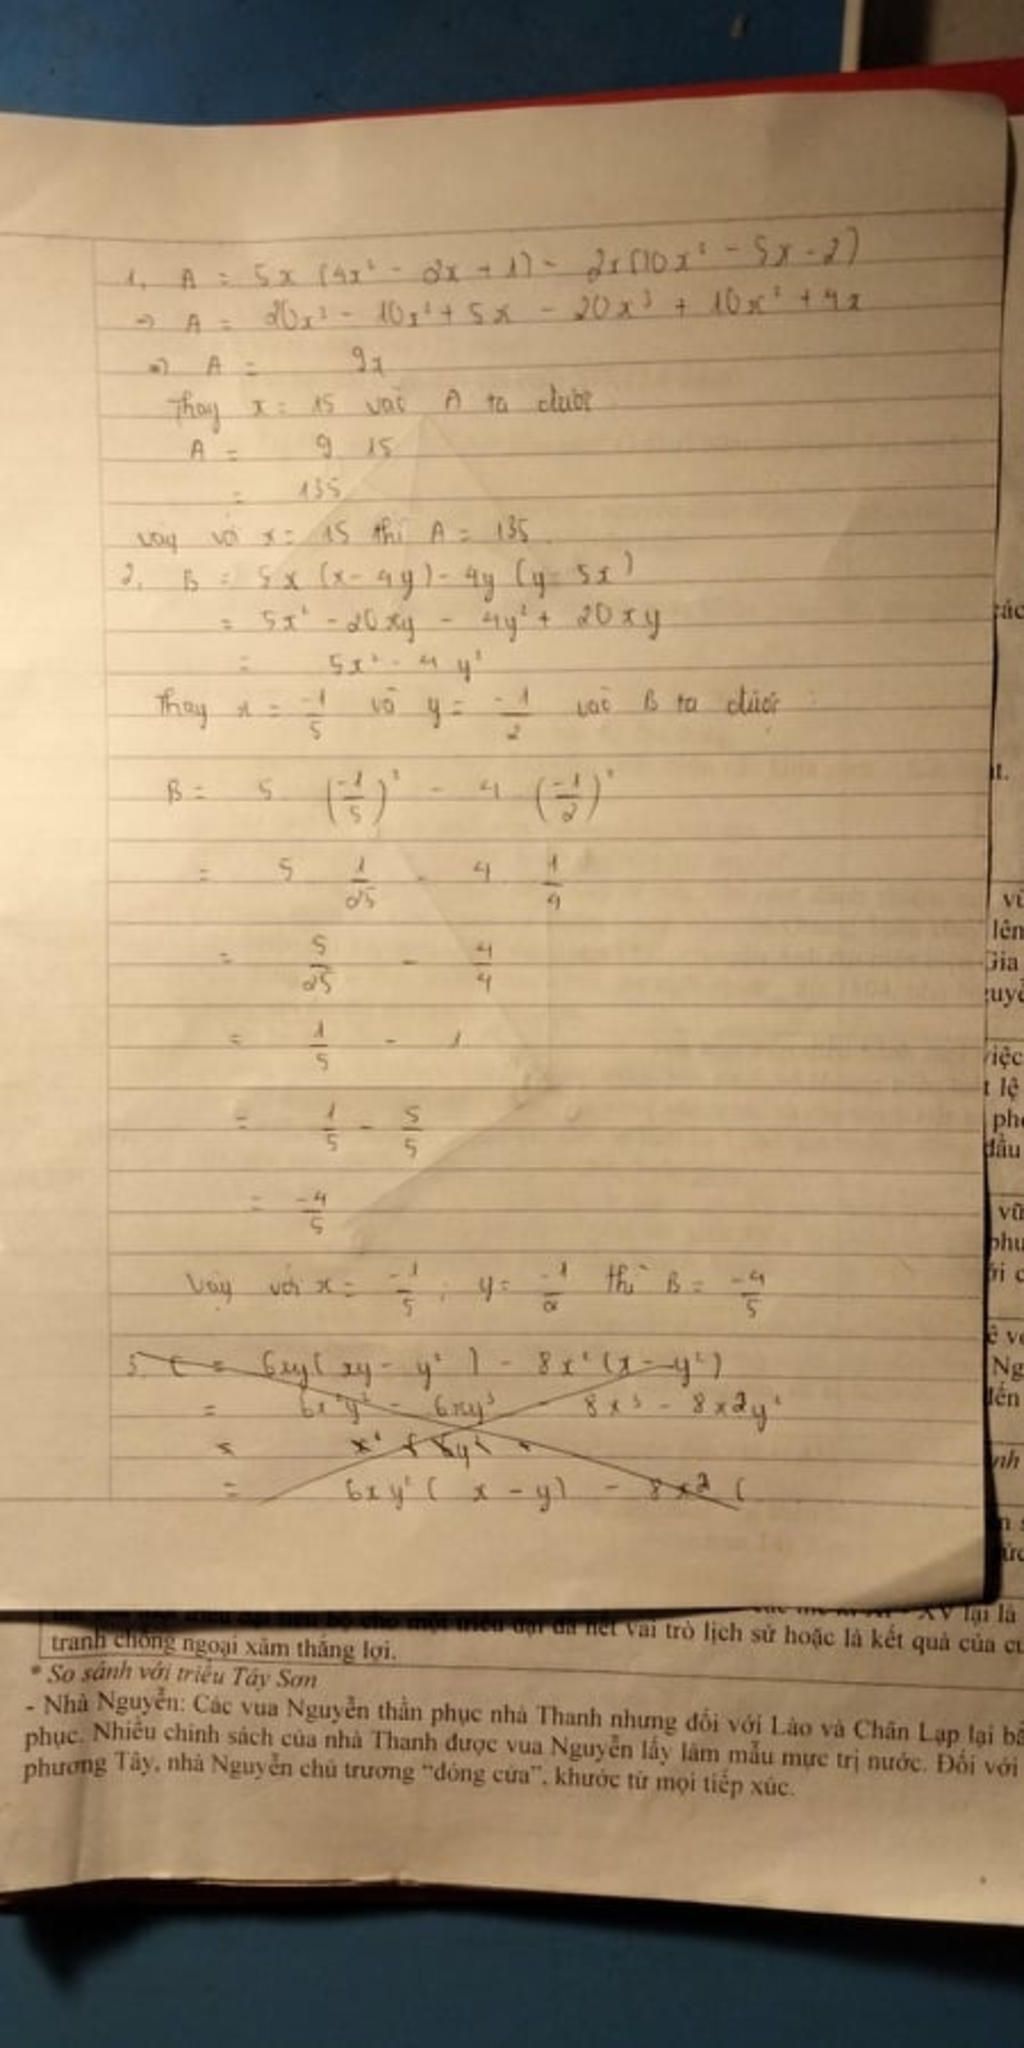 1, A = 5x (4x² - 2x + 1) - 2x(10x² - 5x - 2)
=> A = 20x³ - 10x² + 5x - 20x³ + 10x² + 4x
=> A = 9x
Thay x = 15 vào A ta được
A = 9 15
= 135
vậy với x = 15 thì A = 135.
2, B = 5x (x - 4y) - 4y (y - 5x)
= 5x² - 20xy - 4y² + 20xy
= 5x² - 4y²
Thay x = -1/5 và y = -1/2 vào B ta được :
B = 5 (-1/5)² - 4 (-1/2)²
= 5 1/25 - 4 1/4
= 5/25 - 4/4
= 1/5 - 1
= 1/5 - 5/5
= -4/5
Vậy với x = -1/5 ; y = -1/2 thì B = -4/5
3. C = 6xy( xy - y² ) - 8x² (x - y²)
= 6x²y² - 6xy³ - 8x³ - 8x2y²
= 6xy² ( x - y) - 8x2 (
các
vũ
lên
Gia
việc
t lệ
đầu
vũ
Ng
đến
tranh chống ngoại xâm thắng lợi.
XV lại là
vai trò lịch sử hoặc là kết quả của
* So sánh với triều Tây Sơn
- Nhà Nguyễn: Các vua Nguyễn thần phục nhà Thanh nhưng đối với Lào và Chân Lạp lại
phục. Nhiều chính sách của nhà Thanh được vua Nguyễn lấy làm mẫu mực trị nước. Đối với
phương Tây, nhà Nguyễn chủ trương “đóng cửa”, khước từ mọi tiếp xúc.